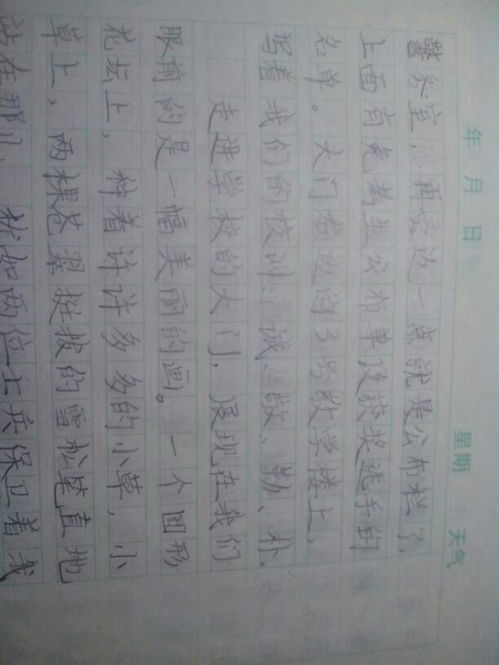 年 月 日 星期 天气
警务室，再旁边一点就是公布栏了，
上面有免考生公布单及获奖选手的
名单。大门右边的3号教学楼上，
写着我们的校训：诚、毅、勤、朴。
走进学校的大门，展现在我们
眼前的是一幅美丽的画。一个圆形
花坛上，种着许许多多的小草，小
草上，两棵苍翠挺拔的雪松笔直地
站在那儿，犹如两位士兵保卫着我